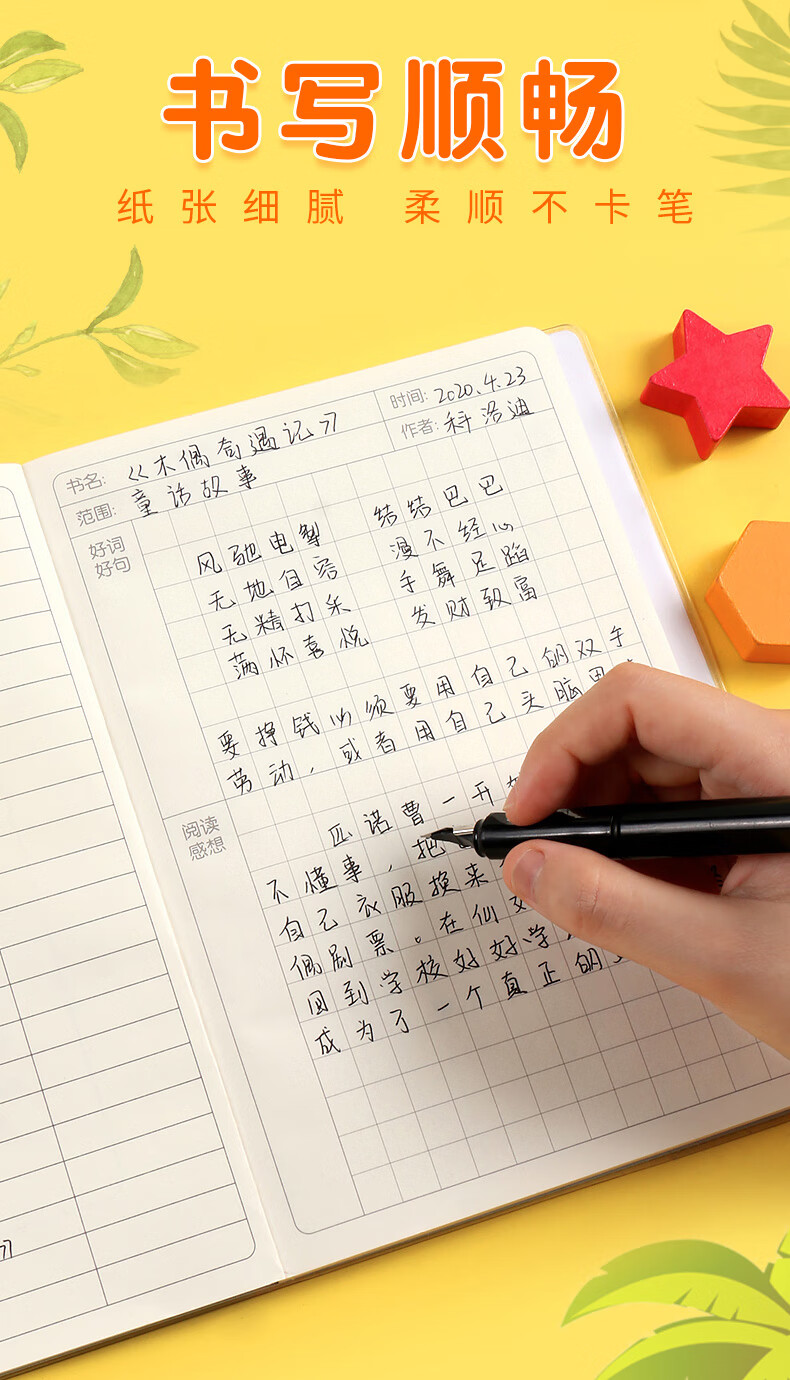 书写顺畅
纸张细腻 柔顺不卡笔
时间: 2020.4.23
书名: 《木偶奇遇记》
作者: 科洛迪
范围: 童话故事
好词
好句
风驰电掣 结结巴巴
无地自容 漫不经心
无精打采 手舞足蹈
满怀喜悦 发财致富
要挣钱必须要用自己的双手
劳动，或者用自己头脑思
阅读
感想
匹诺曹一开
不懂事，把
自己衣服换来
偶剧票。在仙女
回到学校好好学
成为了一个真正的
》